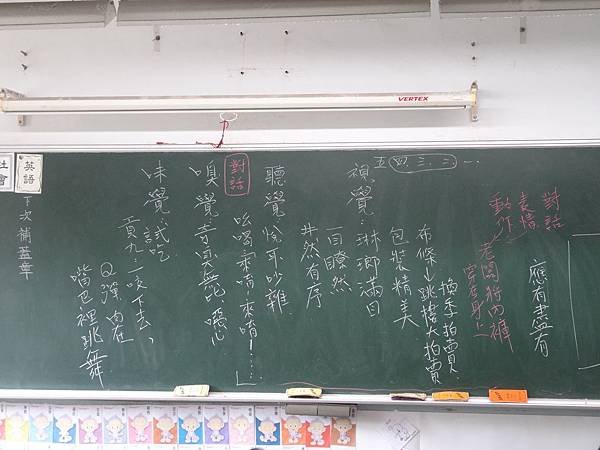 VERTEX
對話
表情
動作
老闆將內褲
穿在身上
應有盡有
五四三二一
視覺：琳瑯滿目
一目瞭然
井然有序
包裝精美
布條↓跳樓大拍賣
換季拍賣
聽覺：悅耳吵雜
對話
吆喝
來唷！……」
嗅覺：奇臭無比噁心
味覺：試吃
貢丸：一咬下去，
Q彈內在
嘴巴裡跳舞
英語
社會
下次補蓋章